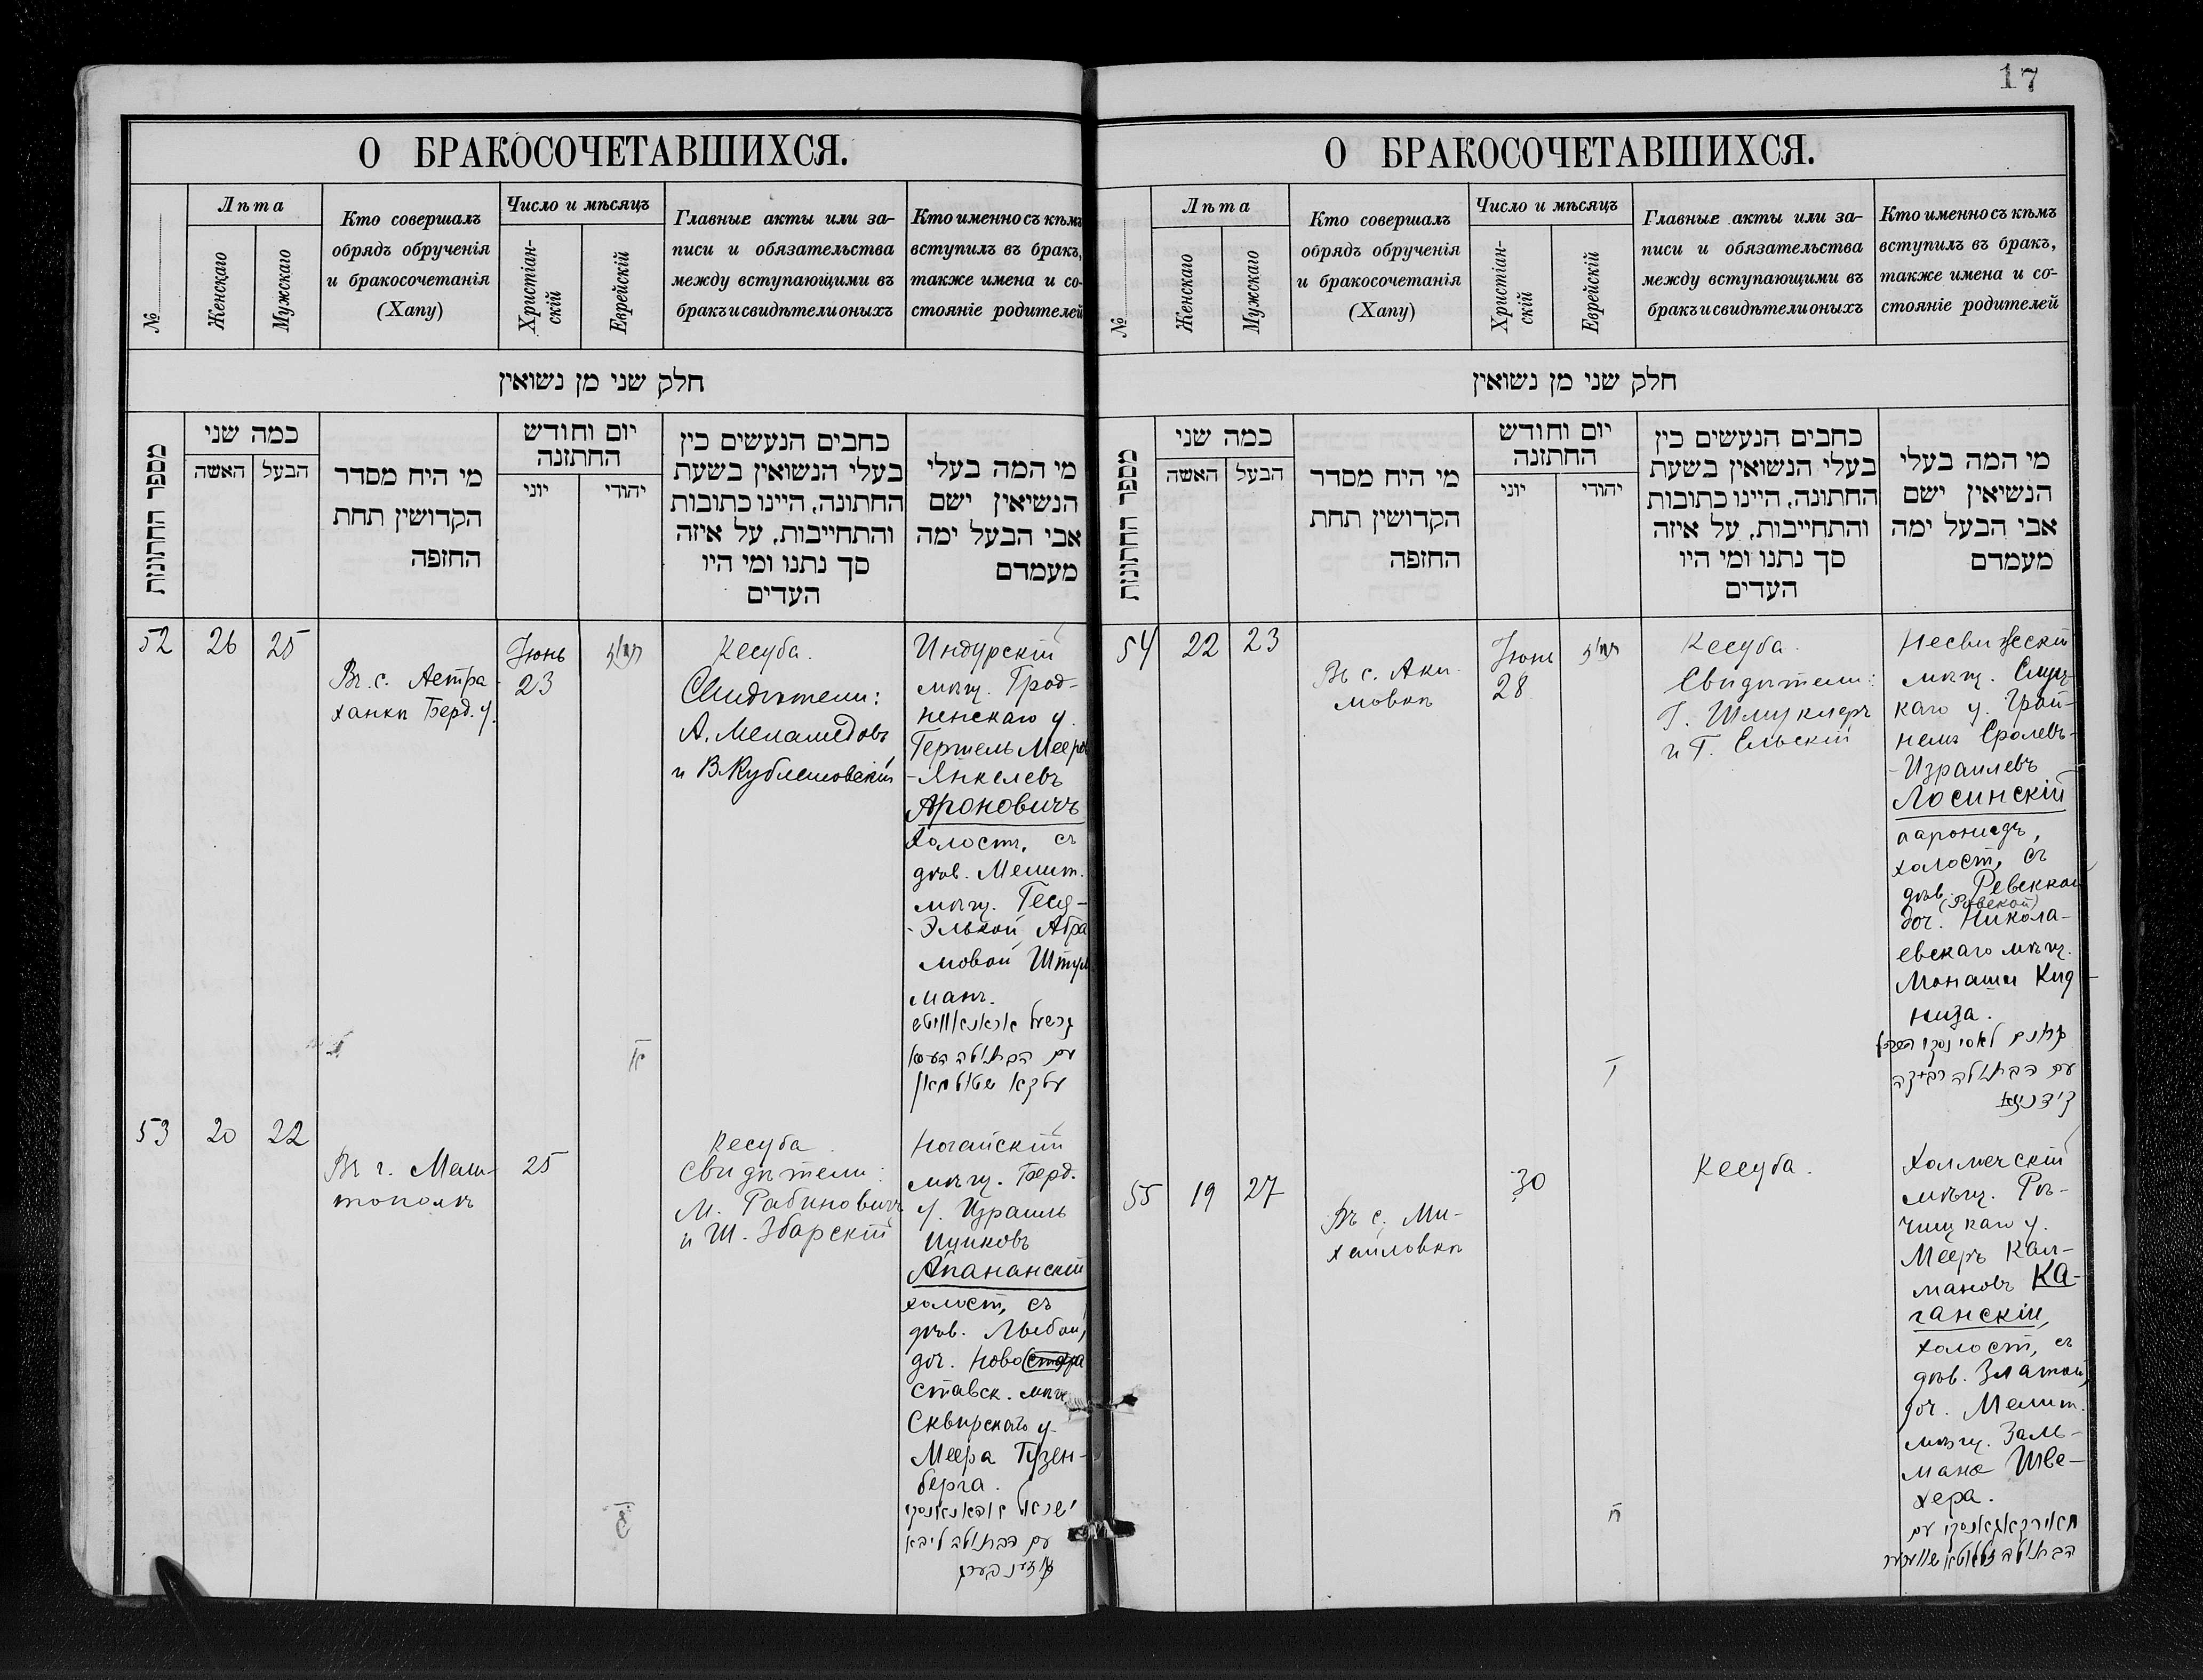 17
О БРАКОСОЧЕТАВШИХСЯ.
№
Лѣта
Женскаго
Мужскаго
Кто совершалъ
обрядъ обрученія
и бракосочетанія
(Хапу)
Число и мѣсяцъ
Христіан-
скій
Еврейскій
Главные акты или за-
писи и обязательства
между вступающими въ
бракъ и свидѣтели оныхъ
Кто именно съ кѣмъ
вступилъ въ бракъ,
также имена и со-
стояніе родителей
חלק שני מן נשואין
מספר החתונות
כמה שני
האשה
הבעל
מי היח מסדר
הקדושין תחת
החופה
יום וחודש
החתונה
יוני
יהודי
כחבים הנעשים כין
בעלי הנשואין בשעת
החתונה, היינו כתובות
והתחייבות, על איזה
סך נתנו ומי היו
העדים
מי המה בעלי
הנשיאין ישם
אבי הבעל ימה
מעמדם
52
26
25
Въ с. Астра-
ханкѣ Берд. у.
Іюнь
23
Кесуба.
Свидѣтели:
А. Меламедовъ
и В. Кублановскій
Индурскій
мѣщ. Грод-
ненскаго у.
Гершель Мееръ
-Янкелевъ
Ароновичъ
холост, съ
дѣв. Мелит.
мѣщ. Геся-
-Элькой Абра
мовой Штул
манъ.
עם הבתולה
53
20
22
Въ г. Мели-
тополѣ
25
Кесуба
Свидѣтели:
М. Рабиновичъ
и Ш. Збарскій
Ногайскій
мѣщ. Берд.
у. Израиль
Ицковъ
Апананскій
холост, съ
дѣв. Либой,
доч. Ново
ставск. мѣщ
Сквирскаго у.
Меера Гузен-
берга.
ישראל
עם הבתולה ליבא
О БРАКОСОЧЕТАВШИХСЯ.
№
Лѣта
Женскаго
Мужскаго
Кто совершалъ
обрядъ обрученія
и бракосочетанія
(Хапу)
Число и мѣсяцъ
Христіан-
скій
Еврейскій
Главные акты или за-
писи и обязательства
между вступающими въ
бракъ и свидѣтели оныхъ
Кто именно съ кѣмъ
вступилъ въ бракъ,
также имена и со-
стояніе родителей
חלק שני מן נשואין
מספר החתונות
כמה שני
האשה
הבעל
מי היח מסדר
הקדושין תחת
החופה
יום וחודש
החתונה
יוני
יהודי
כחבים הנעשים כין
בעלי הנשואין בשעת
החתונה, היינו כתובות
והתחייבות, על איזה
סך נתנו ומי היו
העדים
מי המה בעלי
הנשיאין ישם
אבי הבעל ימה
מעמדם
54
22
23
Въ с. Аки-
мовкѣ
Іюнь
28
Кесуба.
Свидѣтели:
Г. Шмуклеръ
и Г. Ельскій
Несвижскій
мѣщ. Слуц-
каго у. Грой-
немъ Сролевъ-
-Израилевъ
Лосинскій
ааронидъ,
холост, съ
дѣв. Ревеккой
(Ривекой)
доч. Никола-
евскаго мѣщ.
Монаши Кид
низа.
עם הבתולה
55
19
27
Въ с. Ми-
хайловкѣ
30
Кесуба.
Холмечскій
мѣщ. Рѣ-
чицкаго у.
Мееръ Кал-
мановъ КА-
ганскій,
холост, съ
дѣв. Златой,
доч. Мелит.
мѣщ. Заль-
мана Шве-
хера.
הבתולה